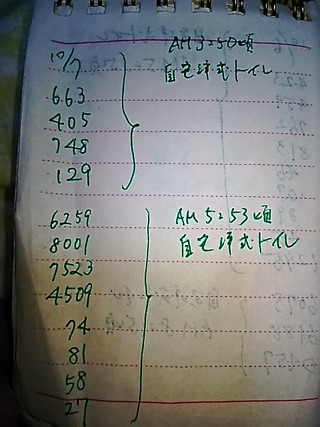 10/7
AM 3=50頃
自宅洋式トイレ
663
405
748
129
6259
AM 5=53頃
8001
自宅洋式トイレ
7523
4509
74
81
58
27